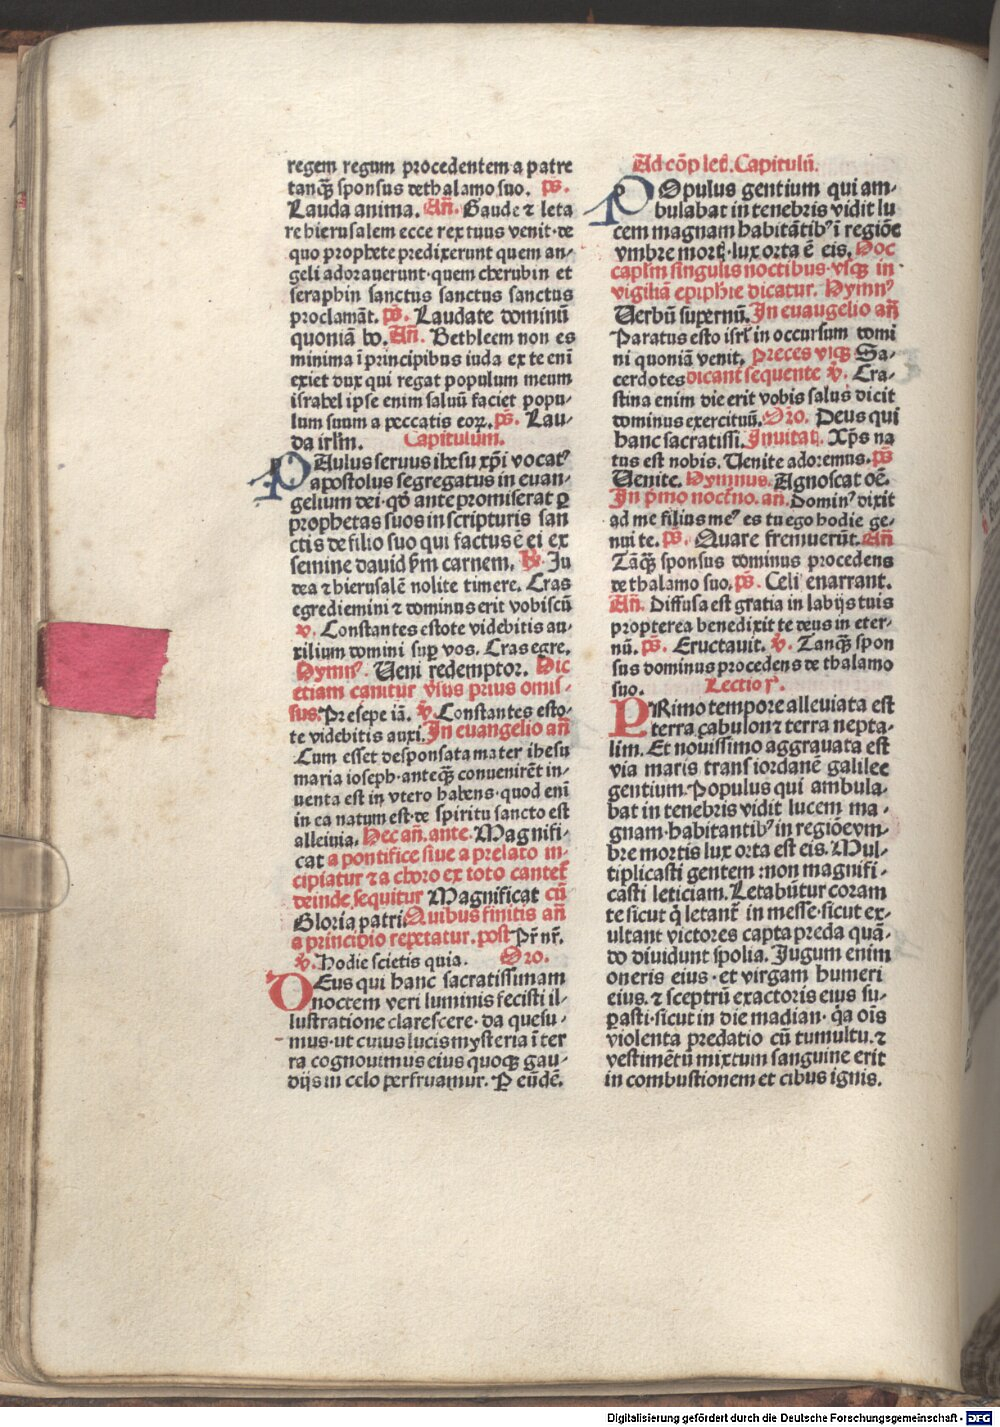 regem regum procedentem a patre
tanq̃ sponsus de thalamo suo. ps.
Lauda anima. Añ. Gaude ⁊ leta
re hierusalem ecce rex tuus venit·de
quo prophete predixerunt quem an-
geli adorauerunt·quem cherubin et
seraphin sanctus sanctus sanctus
proclamãt. ps. Laudate dominũ
quoniã bo. Añ. Bethleem non es
minima ĩ principibus iuda ex te eni
exiet dux qui regat populum meum
israhel ipse enim saluũ faciet popu-
lum suum a peccatis eoꝝ. ps. Lau-
da irlm̃. Capitulum.
PAulus seruus ihesu xp̃i vocatꝰ
apostolus segregatus in euan-
gelium dei·qđ ante promiserat ꝑ
prophetas suos in scripturis san
ctis de filio suo qui factus ẽ ei ex
semine dauid ẜm carnem. ℞. Ju
dea ⁊ hierusalẽ nolite timere. Cras
egrediemini ⁊ dominus erit vobiscũ
℣. Constantes estote videbitis au-
xilium domini suꝑ vos. Cras egre.
Hymnꝰ. Ueni redemptor. Hic
etiam canitur v̾sus prius omis-
sus. Presepe iã. ℣. Constantes esto-
te videbitis auxi. In euangelio añ
Cum esset desponsata mater ihesu
maria ioseph·anteq̃ conuenirẽt in-
uenta est in vtero habens·quod eni
in ea natum est·de spiritu sancto est
alleluia. Hec añ. ante. Magnifi-
cat a pontifice siue a prelato in-
cipiatur ⁊ a choro ex toto cantet̃
deinde sequitur Magnificat cũ
Gloria patri Quibus finitis añ
a principio repetatur. post Pr̃ nr̃.
℣. Hodie scietis quia. Oro.
DEus qui hanc sacratissimam
noctem veri luminis fecisti il-
lustratione clarescere·da quesu-
mus·ut cuius lucis mysteria ĩ ter
ra cognouimus eius quoq̃ gau-
dijs in celo perfruamur. P eũdẽ.
Ad cõpletꝭ. Capitulũ.
POpulus gentium qui am-
bulabat in tenebris vidit lu
cem magnam habitãtibꝰ ĩ regiõe
vmbre mortꝭ·lux orta ẽ eis. Hoc
caplm̃ singulis noctibus·vsq̃ in
vigiliã epiphie dicatur. Hymnꝰ
Uerbũ supernũ. In euangelio añ
Paratus esto isrl̃ in occursum domi
ni quoniã venit. Preces vsq̃ Sa-
cerdotes dicant̃ sequente ℣. Cra-
stina enim die erit vobis salus dicit
dominus exercituũ. Oro. Deus qui
hanc sacratissi. Inuitatꝭ. Xp̃s na
tus est nobis. Uenite adoremus. ps
Uenite. Hymnus. Agnoscat oẽ.
In p̃mo noct̃no. añ. Dominꝰ dixit
ad me filius meꝰ es tu ego hodie ge-
nui te. ps. Quare fremuerũt. Añ
Tãq̃ sponsus dominus procedens
de thalamo suo. ps. Celi enarrant.
Añ. Diffusa est gratia in labijs tuis
propterea benedixit te deus in eter-
nũ. ps. Eructauit. ℣. Tanq̃ spon
sus dominus procedens de thalamo
suo. Lectio j.
PRimo tempore alleuiata est
terra çabulon ⁊ terra nepta-
lim. Et nouissimo aggrauata est
via maris trans iordanẽ galilee
gentium. Populus qui ambula-
bat in tenebris vidit lucem ma-
gnam·habitantibꝰ in regiõe vm-
bre mortis lux orta est eis. Mul-
tiplicasti gentem: non magnifi-
casti leticiam. Letabũtur coram
te sicut q̃ letant̃ in messe·sicut ex-
ultant victores capta preda quã-
do diuidunt spolia. Jugum enim
oneris eius·et virgam humeri
eius. ⁊ sceptrũ exactoris eius su-
ꝑasti·sicut in die madian· q̃a oĩs
violenta predatio cũ tumultu. ⁊
vestimẽtũ mixtum sanguine erit
in combustionem et cibus ignis.
Digitalisierung gefördert durch die Deutsche Forschungsgemeinschaft - DFG